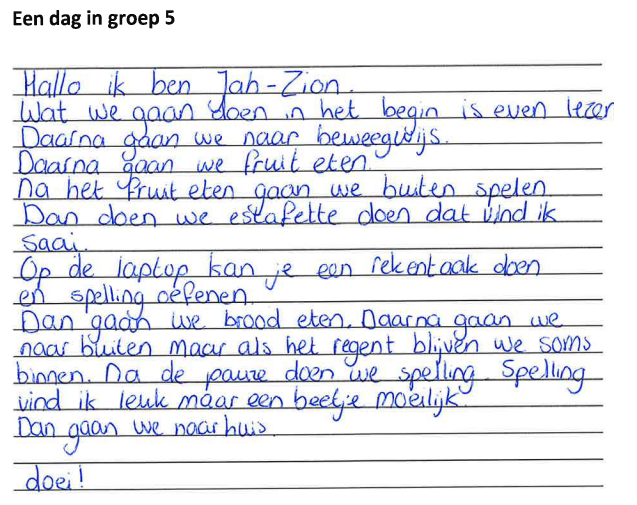 Een dag in groep 5
Hallo ik ben Jah-Zion.
Wat we gaan doen in het begin is even lezer
Daarna gaan we naar beweegwijs.
Daarna gaan we fruit eten.
Na het fruit eten gaan we buiten spelen
Dan doen we estafette doen dat vind ik
saai.
Op de laptop kan je een rekentaak doen
en spelling oefenen.
Dan gaan we brood eten. Daarna gaan we
naar buiten maar als het regent blijven we soms
binnen. Na de pauze doen we spelling. Spelling
vind ik leuk maar een beetje moeilijk.
Dan gaan we naar huis.
doei!